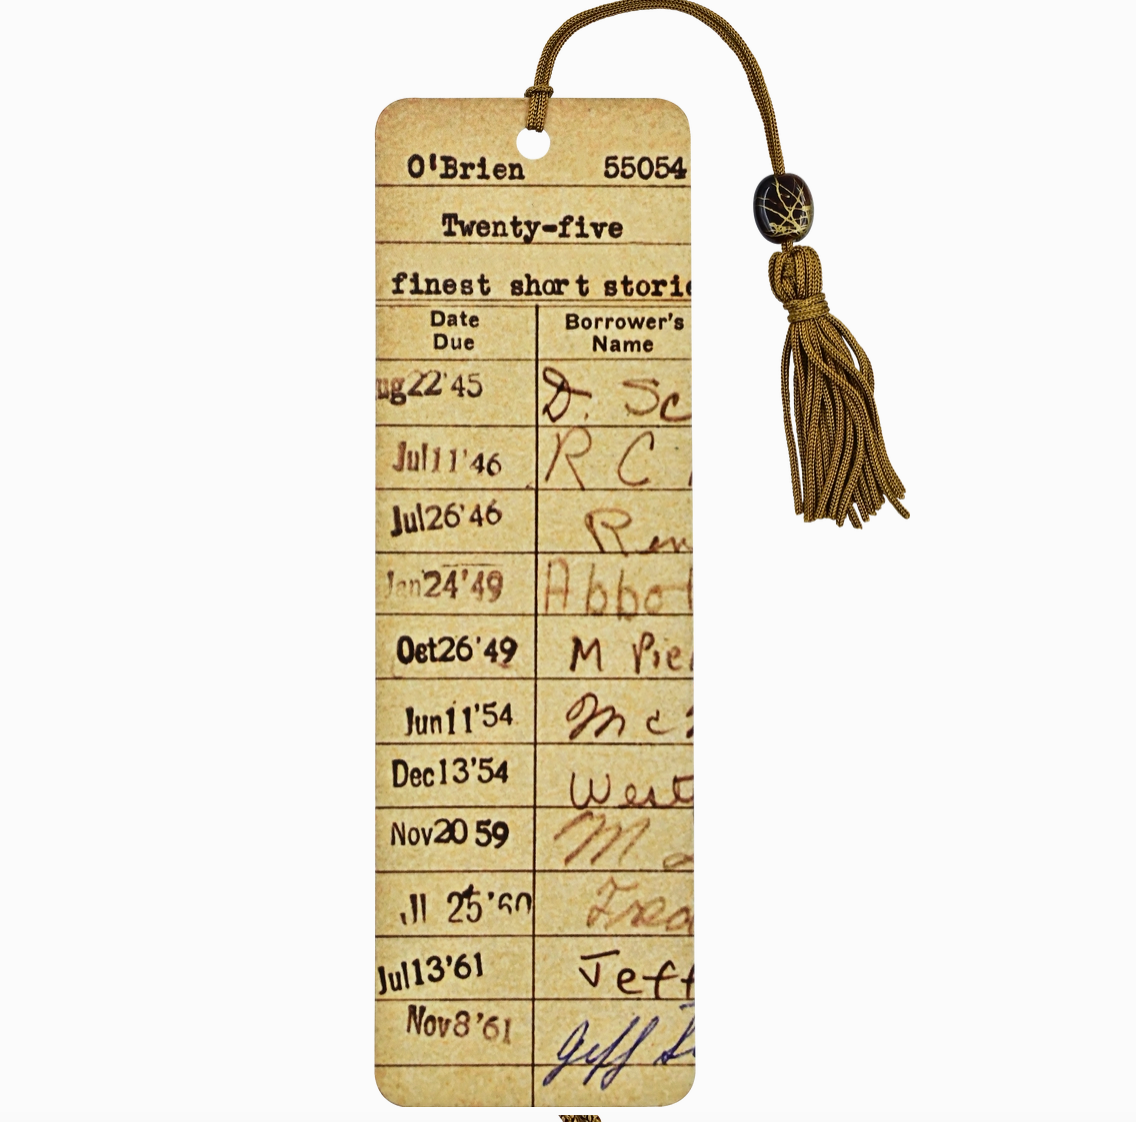 O'Brien 55054
Twenty-five
finest short storie
Date Due Borrower's Name
ug22'45 D. Sc
Jul11'46 R C
Jul26'46 Ren
Jan24'49 Abbot
Oct26'49 M Pie
Jun11'54 Mc
Dec13'54 West
Nov20 59 M
25'60 Fred
Jul13'61 Jeff
Nov8'61 Jeff